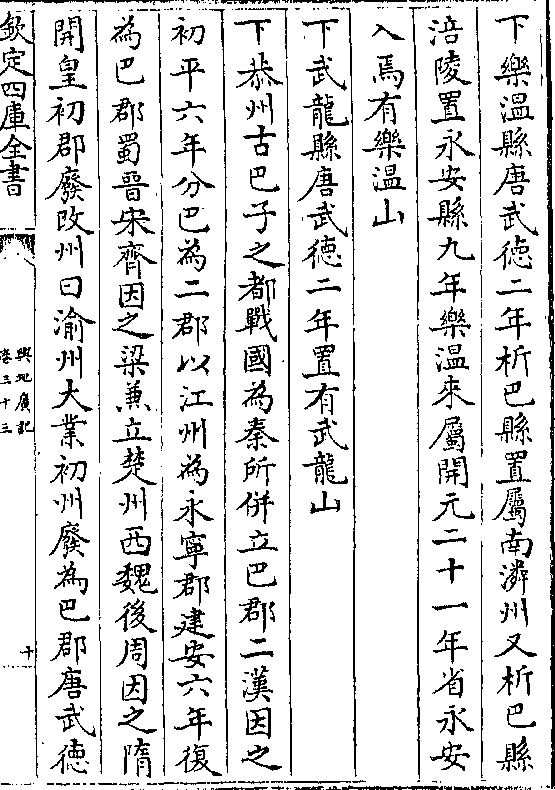 下樂温縣唐武徳二年析巴縣置屬南潾州又析巴縣
涪陵置永安縣九年樂温來屬開元二十一年省永安
入焉有樂温山
下武龍縣唐武徳二年置有武龍山
下恭州古巴子之都戰國為秦所併立巴郡二漢因之
初平六年分巴為二郡以江州為永寧郡建安六年復
為巴郡蜀晉宋齊因之梁兼立楚州西魏後周因之隋
開皇初郡廢改州曰渝州大業初州廢為巴郡唐武徳
欽定四庫全書
輿地廣記
卷三十三
十